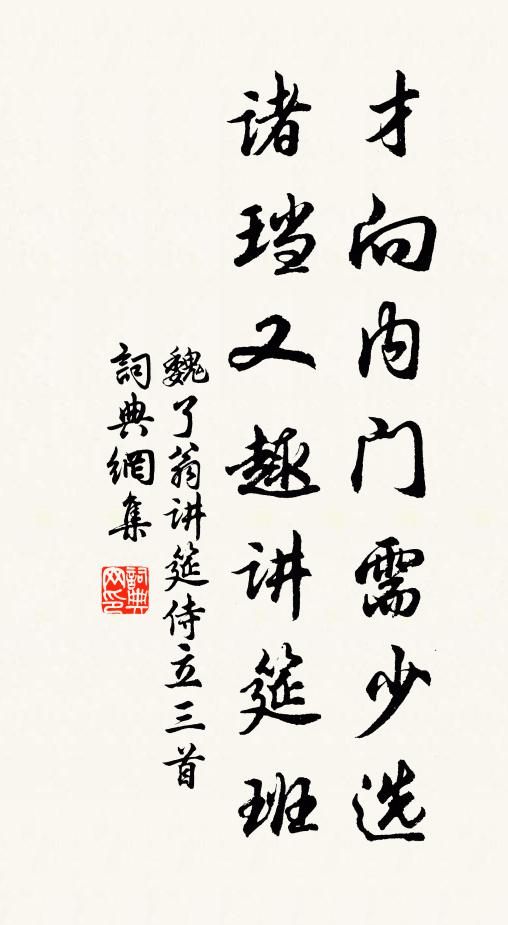 才向内门需少选
诸珰又趣讲筵班
魏了翁讲筵侍立三首
詞典網集
詞典网印